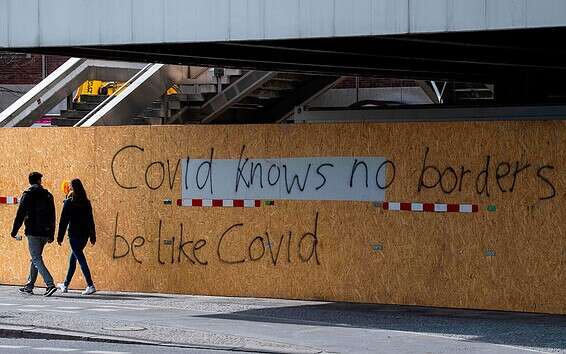 Covid knows no borders
be like Covid